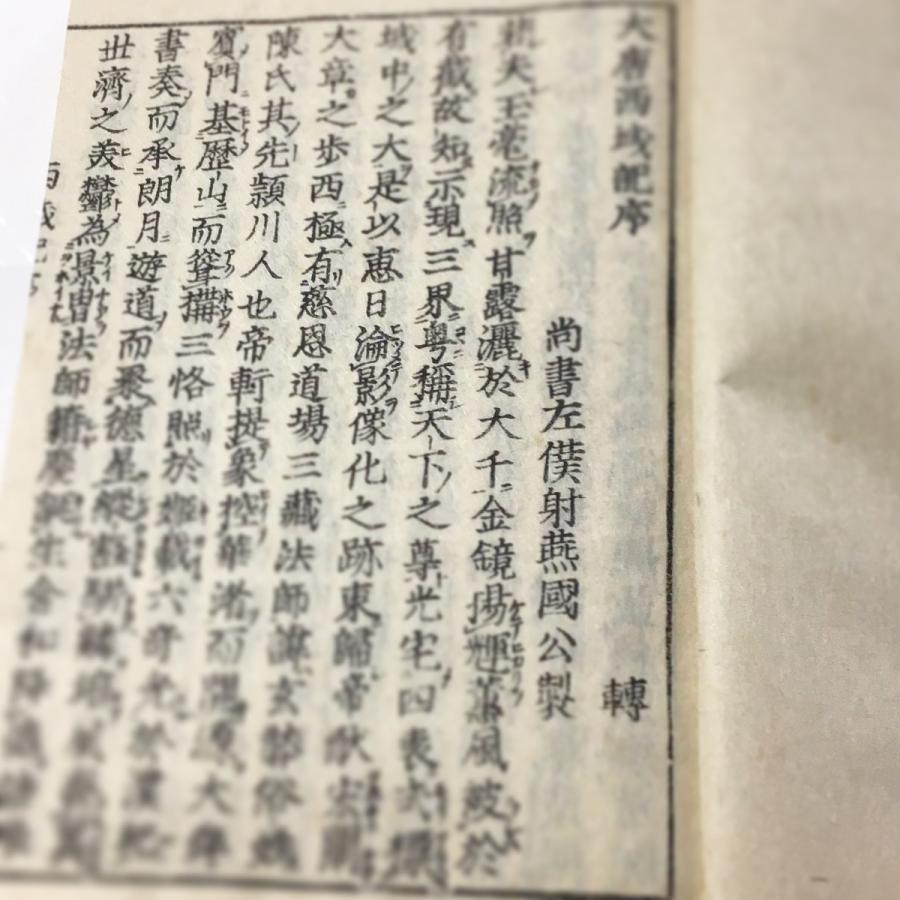 大唐西域記序 轉
尚書左僕射燕國公製
夫玉毫流照甘露灑於大千金鏡揚輝薰風被於
有截故知示現三界粤稱天下之尊光宅四表式標
域中之大是以惠日淪影像化之跡東歸帝猷宏闡
大章之歩西極有慈恩道場三藏法師諱玄奘俗姓
陳氏其先潁川人也帝軒提象控華渚而開源大舜
賓門基歷山而聳搆三恪照於姬載六奇光於漢祀
書奏而承朗月遊道而聚德星縱壑駢鱗培風齊翼
世濟之美鬱為景胄法師籍慶誕生含和降德結根